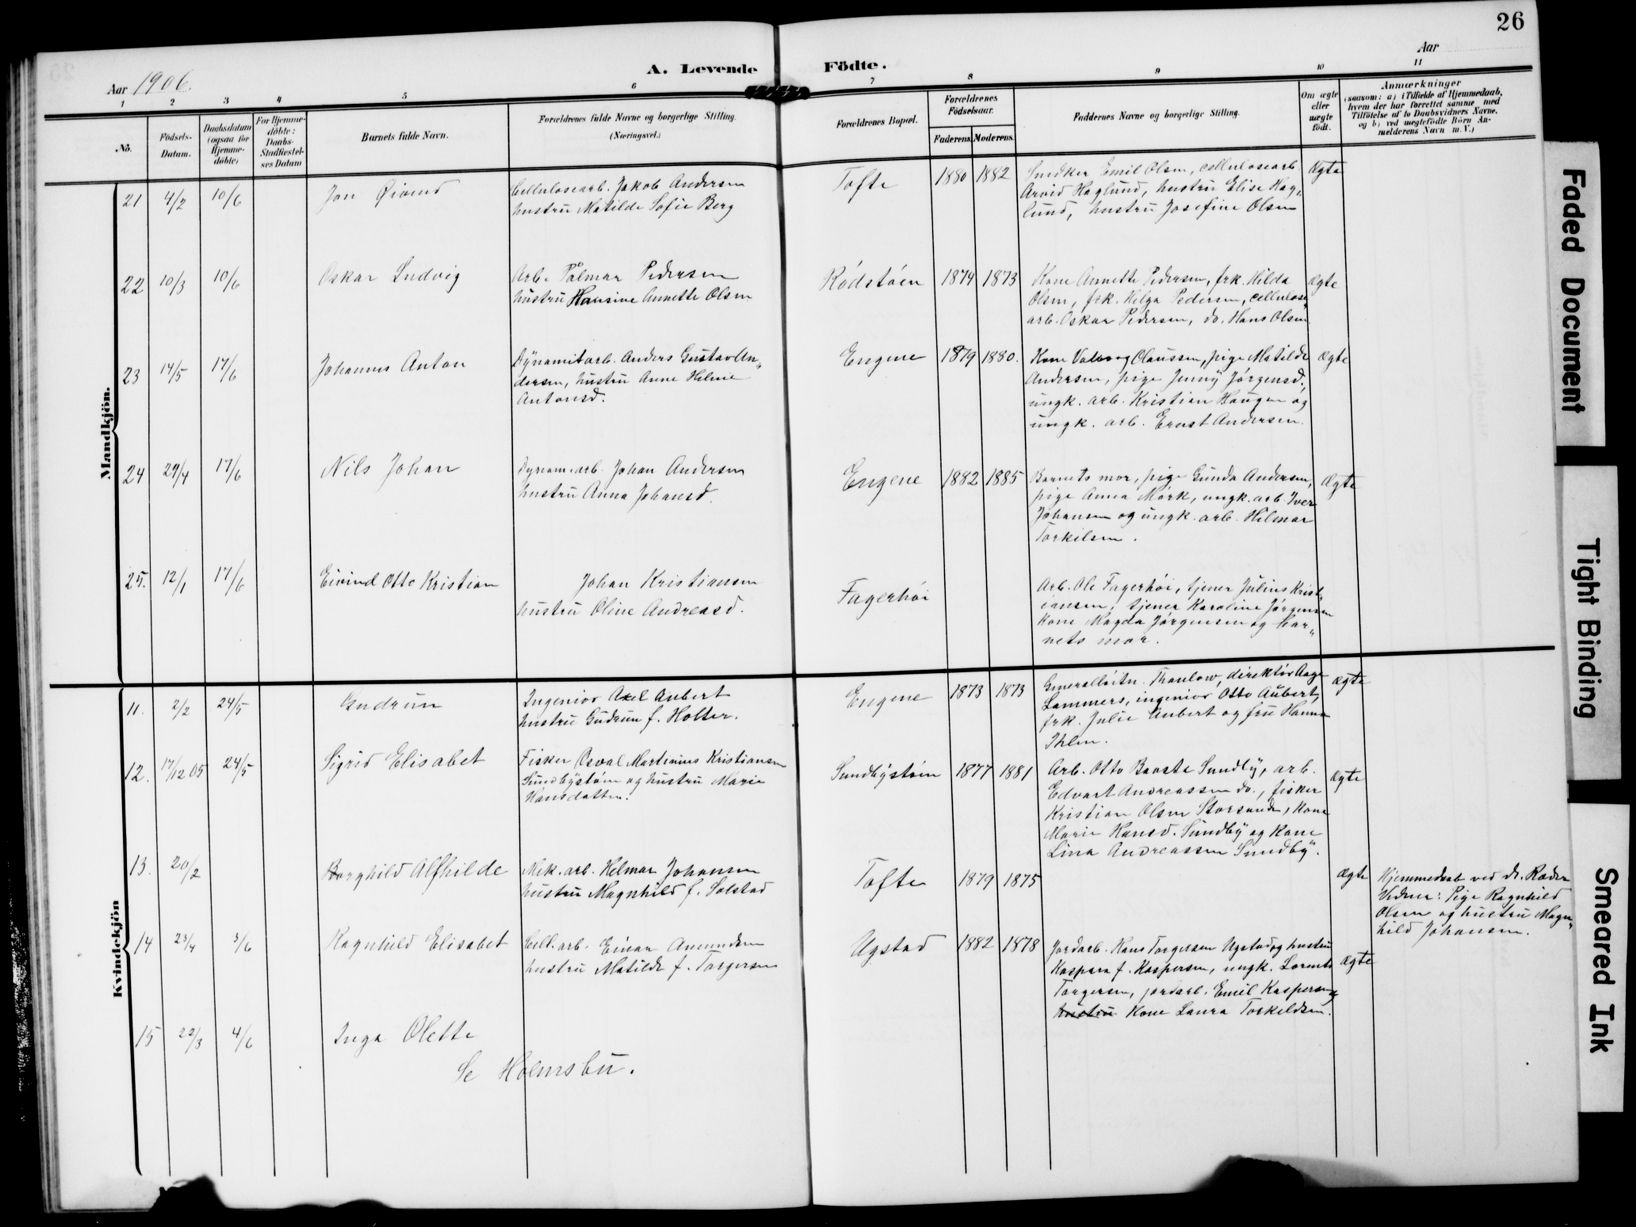 26
Aar 1906.
A. Levende Födte.
Aar
1 2 3 4 5 6 7 8 9 10 11
No.
Födsels-
Datum.
Daabsdatum
(ogsaa for
Hjemme-
döbte)
For Hjemme-
döbte:
Daabs-
Stadfæstel-
ses Datum
Barnets fulde Navn.
Forældrenes fulde Navne og borgerlige Stilling.
(Næringsvei.)
Forældrenes Bopæl.
Forældrenes
Födselsaar.
Faderens. Moderens.
Faddernes Navne og borgerlige Stilling.
Om ægte
eller
uægte
født.
Anmærkninger
(saasom: a) i Tilfælde af Hjemmedaab,
hvem der har forrettet samme, med
Tilföielse af to Daabsvidners Navne,
og b) ved uægtefödte Börn An-
melderens Navn m. V.)
Mandkjön.
21 4/2 10/6 Jon Øivind
Cellulosearb. Jakob Andersen
hustru Matilde Sofie Berg
Tofte 1880 1882
Snedker Emil Olsen, cellulosearb.
Arvid Haglund, hustru Elise Hag-
lund, hustru Josefine Olsen
Ægte
22 10/3 10/6 Oskar Ludvig
Arb. Pålmar Pedersen
hustru Hansine Annette Olsen
Rødstøen 1874 1873
Kone Annette Pedersen, frk. Hilda
Olsen, frk. Helga Pedersen, cellulose-
arb. Oskar Pedersen, do. Hans Olsen
Ægte
23 14/5 17/6 Johannes Anton
Dynamitarb. Anders Gustav An-
dersen, hustru Anne Helene
Antonsd.
Engene 1879 1880.
Kone Valborg Claussen, pige Matilde
Andersen, pige Jenny Jørgensd.,
ungk. arb. Kristian Haugen og
ungk. arb. Ernst Andersen.
Ægte
24 29/4 17/6 Nils Johan
Dynam.arb. Johan Andersen
hustru Anna Johansd.
Engene 1882 1885
Barnets mor, pige Gunda Andersen,
pige Anna Mörk, ungk. arb. Iver
Johansen og ungk. arb. Hilmar
Torkilsen.
Ægte
25. 12/1 17/6 Eivind Otto Kristian
Johan Kristiansen
hustru Oline Andreasd.
Fagerhøi
Arb. Ole Fagerhøi, tjener Julius Krist-
iansen, tjener Karoline Jørgensen
kone Magda Jørgensen og bar-
nets mor.
Kvindekjön
11. 2/2 24/5 Gudrun
Ingeniør Axel Aubert
hustru Gudrun f. Holter.
Engene 1873 1873
Generalløitn. Thaulow, direktør Aage
Lammers, ingeniør Otto Aubert,
frk. Julie Aubert og fru Hanna
Ihlen.
Ægte
12. 17/12 05 24/5 Sigrid Elisabet
Fisker Osval Martinius Kristiansen
Sundbystøen og hustru Marie
Hansdatter.
Sundbystøen 1877 1881
Arb. Otto Baasta Sundby, arb.
Edvart Andreassen do., fisker
Kristian Olsen Storsand, kone
Marie Hansd. Sundby og kone
Lina Andreassen Sundby.
Ægte
13. 20/2 Borghild Alfhilde
Mek. arb. Helmar Johansen
hustru Magnhild f. Solstad
Tofte 1879 1875
Ægte
Hjemmedøbt ved dr. Ræder
Vidner: Pige Ragnhild
Olsen og hustru Magn-
hild Johansen.
14 23/4 3/6 Ragnhild Elisabet
Cell. arb. Einar Amundsen
hustru Matilde f. Torgersen
Ugstad 1882 1878
Jordarb. Hans Torgersen Ugstad og hustru
Kaspara f. Kaspersen, ungk. Lorents
Torgersen, jordarb. Emil Kaspersen,
hustru Kone Laura Torkildsen.
Ægte
15 22/3 4/6 Inga Olette
Se Holmsbu.
Faded Document
Tight Binding
Smeared Ink